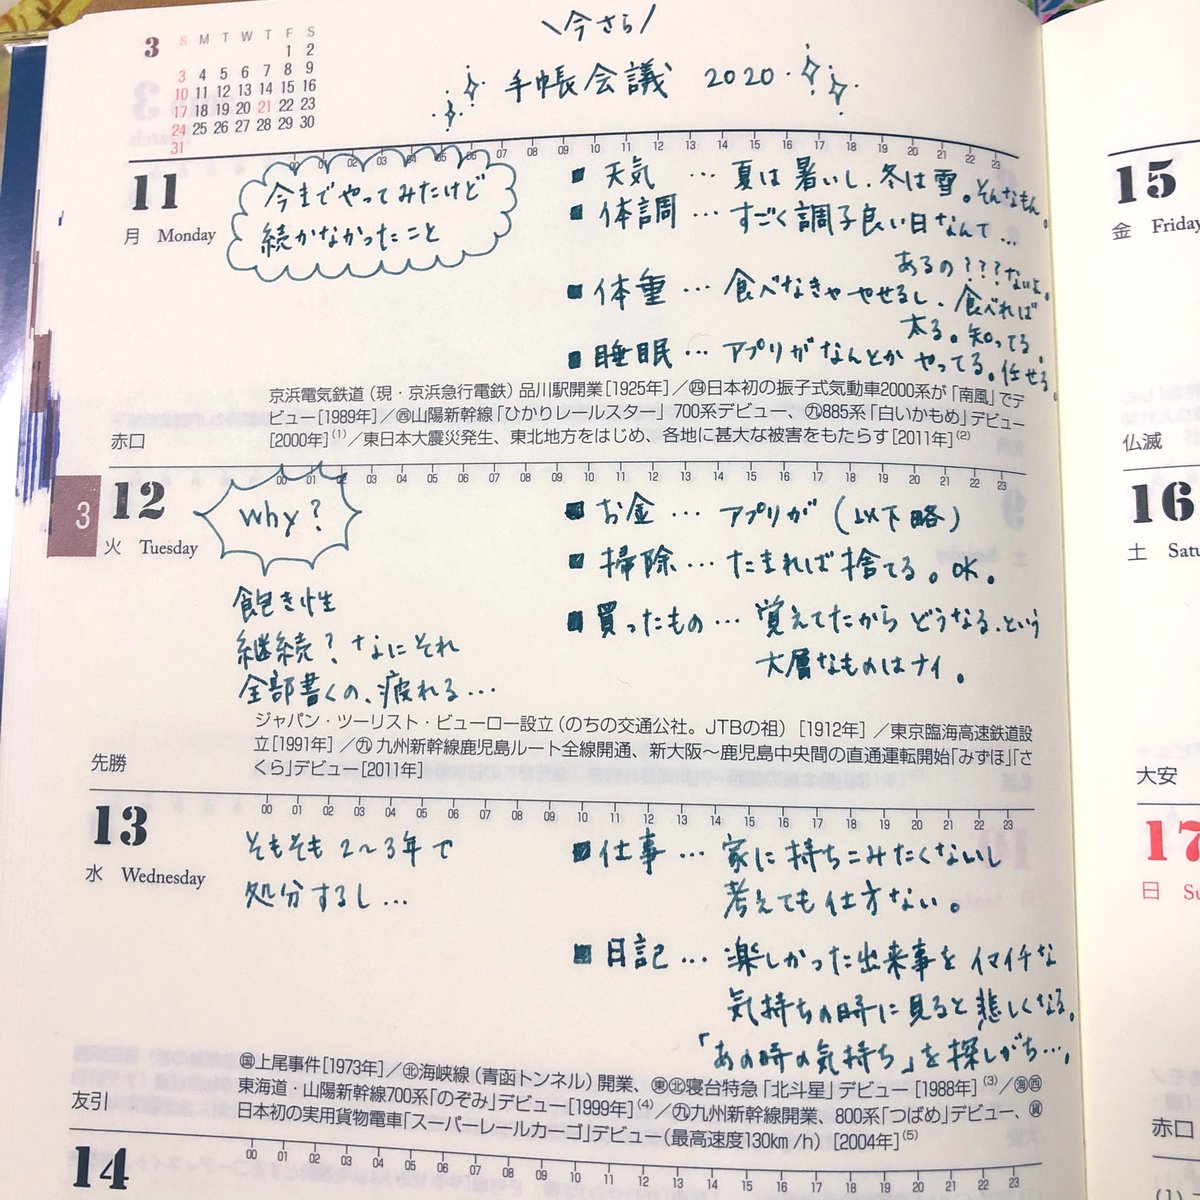 \今さら/
手帳会議 2020
3
S M T W T F S
1 2
3 4 5 6 7 8 9
10 11 12 13 14 15 16
17 18 19 20 21 22 23
24 25 26 27 28 29 30
31
00 01 02 03 04 05 06 07 08 09 10 11 12 13 14 15 16 17 18 19 20 21 22 23
11
月 Monday
今までやってみたけど
続かなかったこと
■ 天気 … 夏は暑いし、冬は雪。そんなもん。
■ 体調 … すごく調子良い日なんて…
あるの???ないよ。
■ 体重 … 食べなきゃやせるし、食べれば
太る。知ってる。
■ 睡眠 … アプリがなんとかやってる。任せる。
京浜電気鉄道（現・京浜急行電鉄）品川駅開業［1925年］／㊃日本初の振子式気動車2000系が「南風」でデ
ビュー［1989年］／㊄山陽新幹線「ひかりレールスター」700系デビュー、㊈885系「白いかもめ」デビュー
［2000年］(1)／東日本大震災発生、東北地方をはじめ、各地に甚大な被害をもたらす［2011年］(2)
赤口
00 01 02 03 04 05 06 07 08 09 10 11 12 13 14 15 16 17 18 19 20 21 22 23
3
12
火 Tuesday
why?
飽き性
継続?なにそれ
全部書くの、疲れる…
■ お金 … アプリが(以下略)
■ 掃除 … たまれば捨てる。OK。
■ 買ったもの … 覚えてたからどうなる、という
大層なものはナイ。
ジャパン・ツーリスト・ビューロー設立（のちの交通公社。JTBの祖）［1912年］／東京臨海高速鉄道設
立［1991年］／㊈九州新幹線鹿児島ルート全線開通、新大阪～鹿児島中央間の直通運転開始「みずほ」「さ
くら」デビュー［2011年］
先勝
00 01 02 03 04 05 06 07 08 09 10 11 12 13 14 15 16 17 18 19 20 21 22 23
13
水 Wednesday
そもそも2〜3年で
処分するし…
■ 仕事 … 家に持ちこみたくないし
考えても仕方ない。
■ 日記 … 楽しかった出来事をイマイチな
気持ちの時に見ると悲しくなる。
「あの時の気持ち」を探しがち…。
上尾事件［1973年］／㊗海峡線（青函トンネル）開業、寝台特急「北斗星」デビュー［1988年］(3)／
東海道・山陽新幹線700系「のぞみ」デビュー［1999年］(4)／㊈九州新幹線開業、800系「つばめ」デビュー、
日本初の実用貨物電車「スーパーレールカーゴ」デビュー（最高速度130km/h）［2004年］(5)
友引
00 01 02 03 04 05 06 07 08 09 10 11 12 13 14 15 16 17 18 19 20 21 22 23
14
15
金 Friday
仏滅
16
土
大安
17
日
赤口